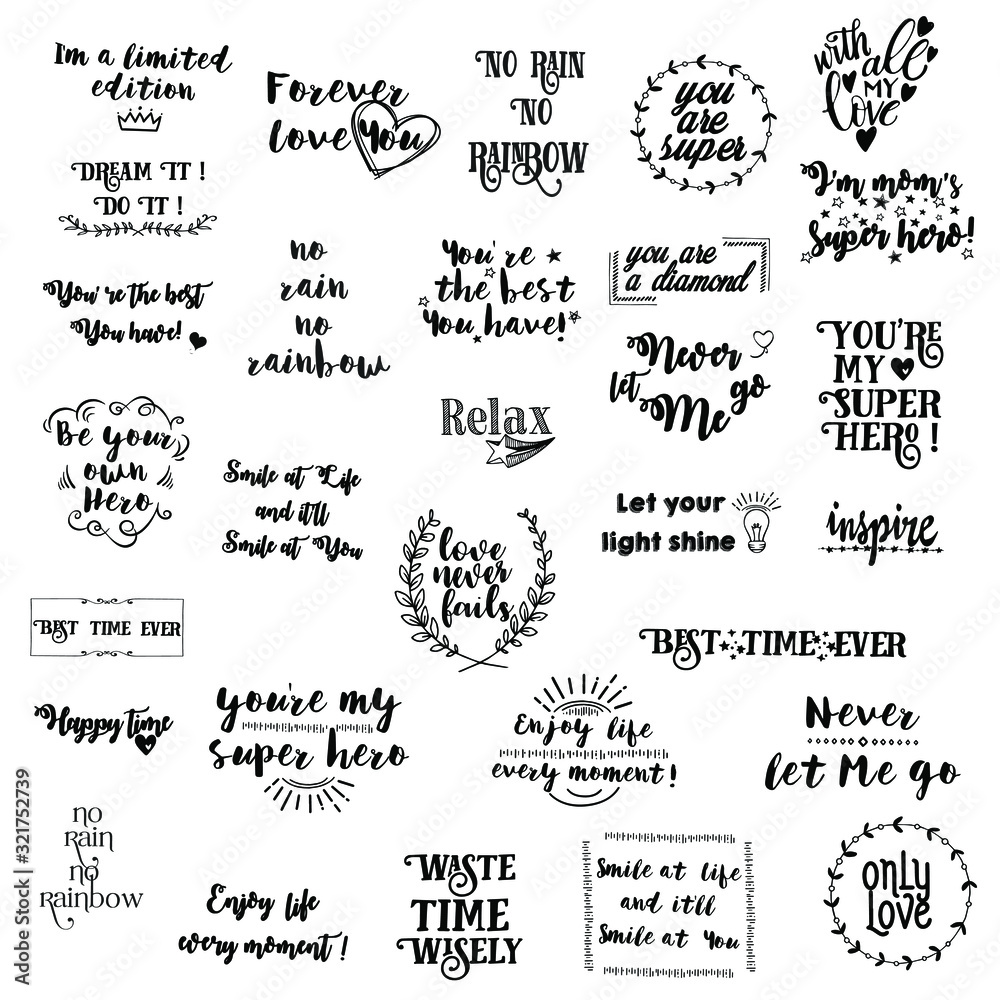 I'm a limited
edition
Forever
love You
NO RAIN
NO
RAINBOW
you
are
super
with all
MY
love
DREAM IT !
DO IT !
I'm mom's
Super hero!
You're the best
You have!
no
rain
no
rainbow
You're
the best
You have!
you are
a diamond
Never
let go
Me
YOU'RE
MY
SUPER
HERO !
Be Your
own
Hero
Relax
Smile at Life
and it'll
Smile at You
Let your
light shine
inspire
love
never
fails
BEST TIME EVER
BEST TIME EVER
Happy time
you're my
super hero
Enjoy life
every moment!
Never
let Me go
no
rain
no
rainbow
Enjoy life
every moment!
WASTE
TIME
WISELY
Smile at life
and it'll
Smile at You
only
love
Adobe Stock | #321752739
Adobe Stock